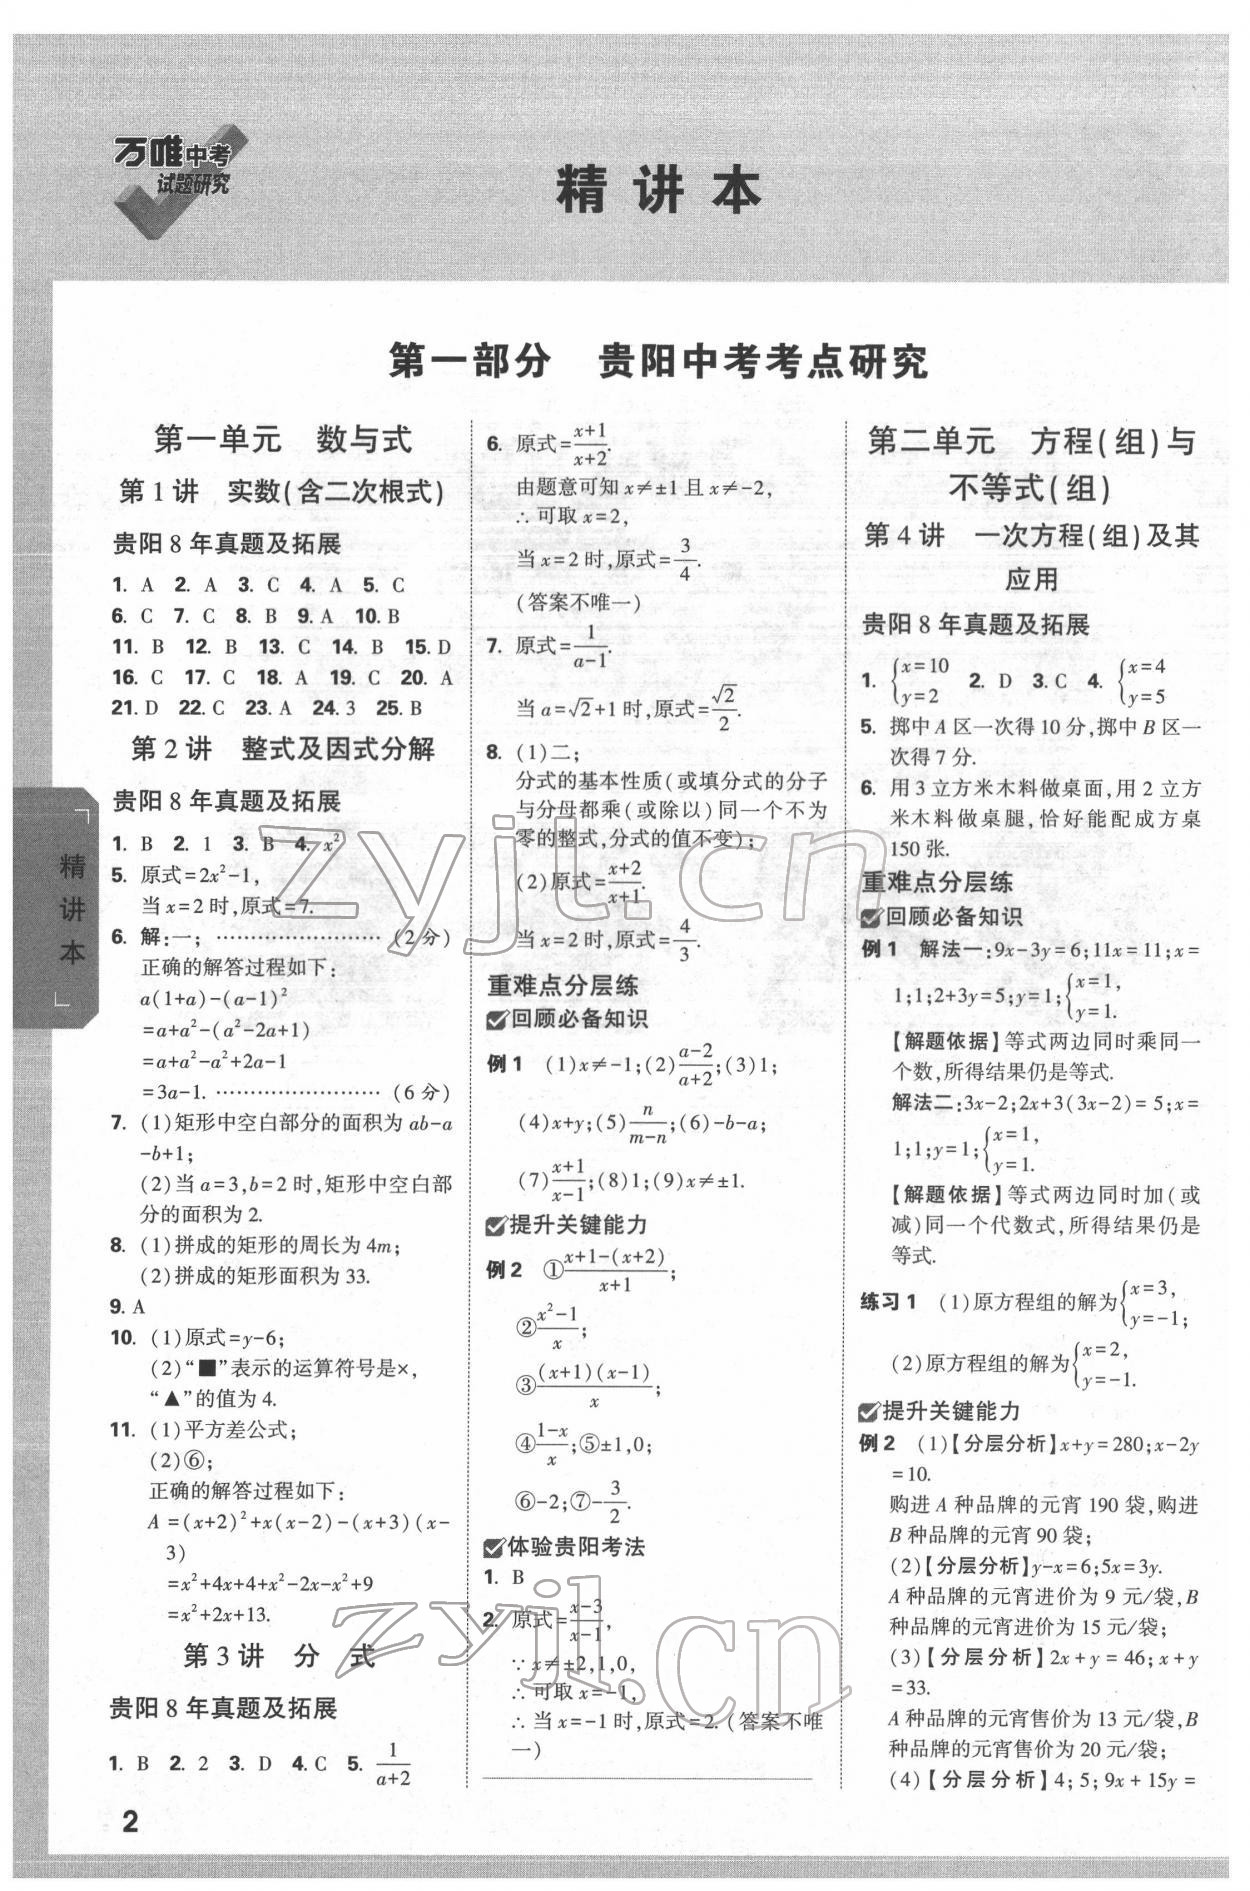 万唯中考
试题研究
精讲本
第一部分 贵阳中考考点研究
第一单元 数与式
第1讲 实数(含二次根式)
贵阳8年真题及拓展
1. A 2. A 3. C 4. A 5. C
6. C 7. C 8. B 9. A 10. B
11. B 12. B 13. C 14. B 15. D
16. C 17. C 18. A 19. C 20. A
21. D 22. C 23. A 24. 3 25. B
第2讲 整式及因式分解
贵阳8年真题及拓展
1. B 2. 1 3. B 4. x²
5. 原式=2x²-1,
当x=2时,原式=7.
6. 解:一; ……………………(2分)
正确的解答过程如下:
a(1+a)-(a-1)²
=a+a²-(a²-2a+1)
=a+a²-a²+2a-1
=3a-1. ……………………(6分)
7. (1)矩形中空白部分的面积为ab-a
-b+1;
(2)当a=3,b=2时,矩形中空白部
分的面积为2.
8. (1)拼成的矩形的周长为4m;
(2)拼成的矩形面积为33.
9. A
10. (1)原式=y-6;
(2)“■”表示的运算符号是×,
“▲”的值为4.
11. (1)平方差公式;
(2)⑥;
正确的解答过程如下:
A=(x+2)²+x(x-2)-(x+3)(x-
3)
=x²+4x+4+x²-2x-x²+9
=x²+2x+13.
第3讲 分 式
贵阳8年真题及拓展
1. B 2. 2 3. D 4. C 5. 1/(a+2)
6. 原式=(x+1)/(x+2).
由题意可知x≠±1且x≠-2,
∴可取x=2,
当x=2时,原式=3/4.
(答案不唯一)
7. 原式=1/(a-1).
当a=√2+1时,原式=√2/2.
8. (1)二;
分式的基本性质(或填分式的分子
与分母都乘(或除以)同一个不为
零的整式,分式的值不变);
(2)原式=(x+2)/(x+1).
当x=2时,原式=4/3.
重难点分层练
回顾必备知识
例1 (1)x≠-1;(2)(a-2)/(a+2);(3)1;
(4)x+y;(5)n/(m-n);(6)-b-a;
(7)(x+1)/(x-1);(8)1;(9)x≠±1.
提升关键能力
例2 ①(x+1-(x+2))/(x+1);
②(x²-1)/x;
③((x+1)(x-1))/x;
④(1-x)/x;⑤±1,0;
⑥-2;⑦-3/2.
体验贵阳考法
1. B
2. 原式=(x-3)/(x-1),
∵x≠±2,1,0,
∴可取x=-1,
∴当x=-1时,原式=2.(答案不唯
一)
第二单元 方程(组)与
不等式(组)
第4讲 一次方程(组)及其
应用
贵阳8年真题及拓展
1. {x=10 y=2 2. D 3. C 4. {x=4 y=5
5. 掷中A区一次得10分,掷中B区一
次得7分.
6. 用3立方米木料做桌面,用2立方
米木料做桌腿,恰好能配成方桌
150张.
重难点分层练
回顾必备知识
例1 解法一:9x-3y=6;11x=11;x=
1;1;2+3y=5;y=1;{x=1, y=1.
【解题依据】等式两边同时乘同一
个数,所得结果仍是等式.
解法二:3x-2;2x+3(3x-2)=5;x=
1;1;y=1;{x=1, y=1.
【解题依据】等式两边同时加(或
减)同一个代数式,所得结果仍是
等式.
练习1 (1)原方程组的解为{x=3, y=-1;
(2)原方程组的解为{x=2, y=-1.
提升关键能力
例2 (1)【分层分析】x+y=280;x-2y
=10.
购进A种品牌的元宵190袋,购进
B种品牌的元宵90袋;
(2)【分层分析】y-x=6;5x=3y.
A种品牌的元宵进价为9元/袋,B
种品牌的元宵进价为15元/袋;
(3)【分层分析】2x+y=46;x+y
=33.
A种品牌的元宵售价为13元/袋,B
种品牌的元宵售价为20元/袋;
(4)【分层分析】4;5;9x+15y=
精讲本
2
zyjl.cn
zyjl.cn